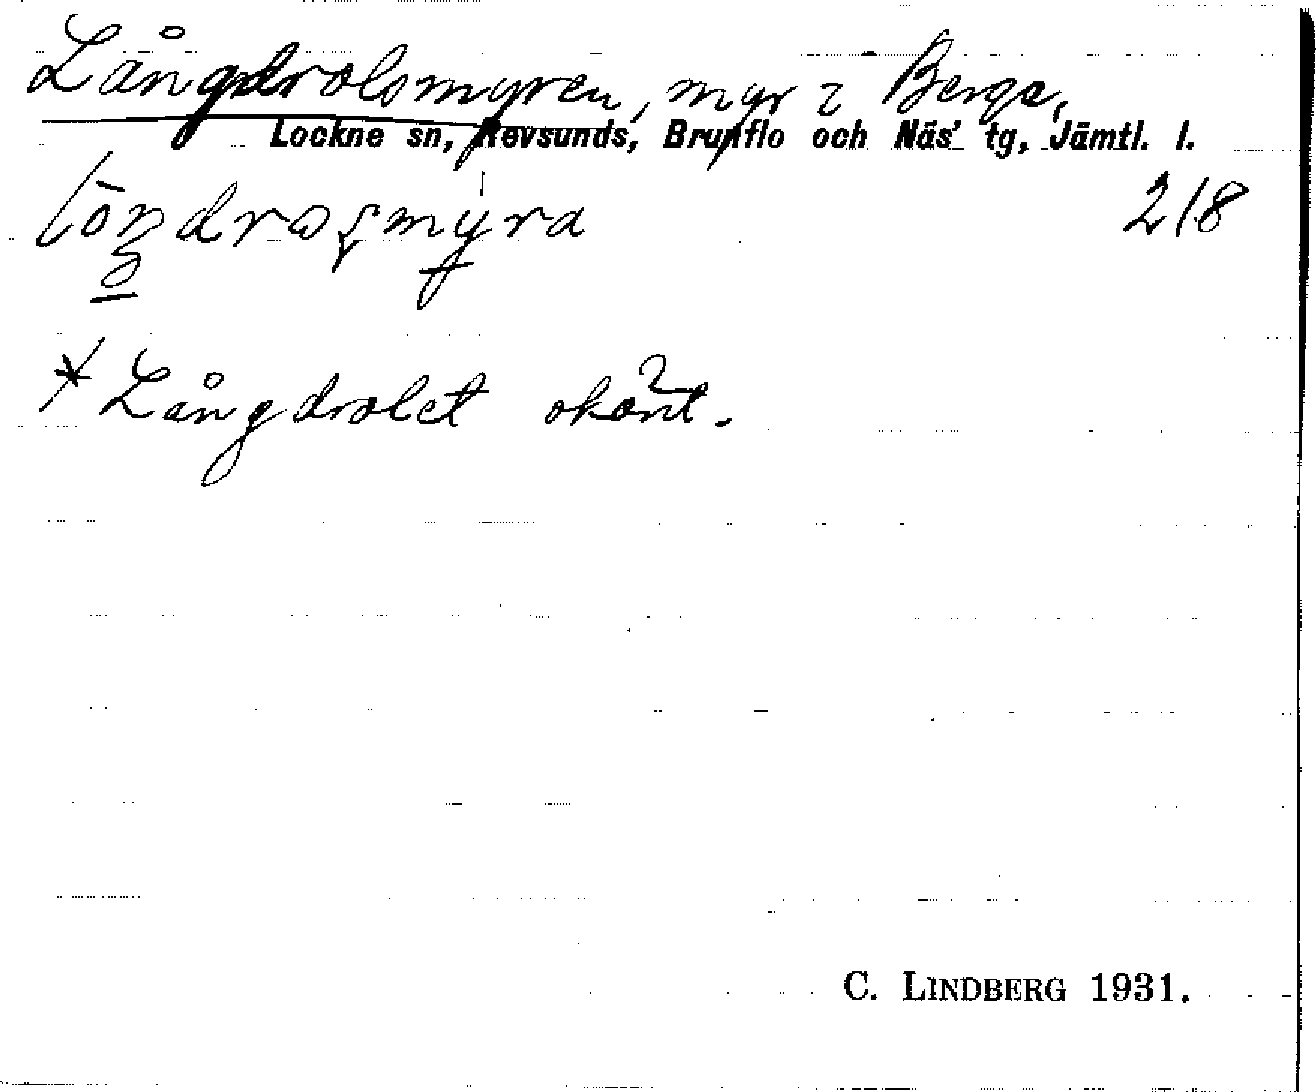 Långdrolsmyren, myr i Berge,
Lockne sn, Revsunds, Brunflo och Näs' tg, Jämtl. l.
218
* Långdrolet okänt.
C. LINDBERG 1931.